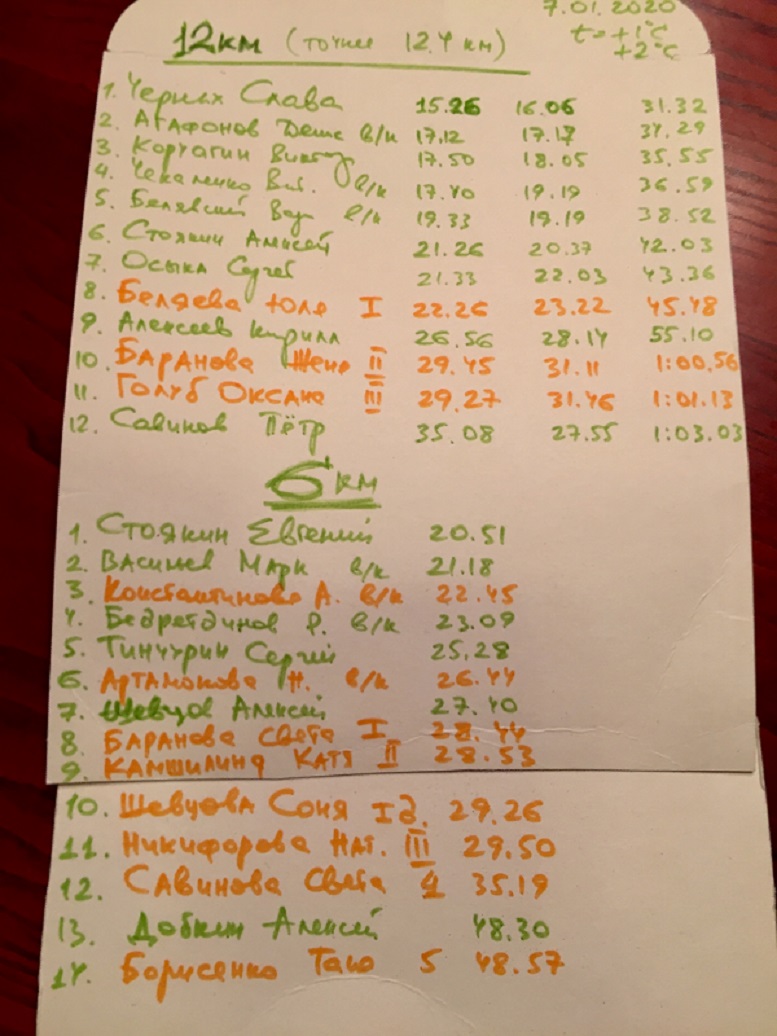 7.01.2020
12км (точнее 12.4 км)
t=+1°C
+2°C
1. Черных Слава 15.26 16.06 31.32
2. Агафонов Денис в/к 17.12 17.17 34.29
3. Корчагин Виктор 17.50 18.05 35.55
4. Чекаленко в/к 17.40 19.19 36.59
5. Белявский в/к 19.33 19.19 38.52
6. Стоякин Алексей 21.26 20.37 42.03
7. Осыка Сергей 21.33 22.03 43.36
8. Беляева Юля I 22.26 23.22 45.48
9. Алексеев Кирилл 26.56 28.14 55.10
10. Баранова Женя II 29.45 31.11 1:00.56
11. Голуб Оксана III 29.27 31.46 1:01.13
12. Савинов Пётр 35.08 27.55 1:03.03
6 км
1. Стоякин Евгений 20.51
2. Васильев Марк в/к 21.18
3. Константинова А. в/к 22.45
4. Бедретдинов Р. в/к 23.09
5. Тинчурин Сергей 25.28
6. Артамонова Н. в/к 26.44
7. Шевцов Алексей 27.40
8. Баранова Света I 28.44
9. Камшилина Катя II 28.53
10. Шевцова Соня Iд. 29.26
11. Никифорова Нат. III 29.50
12. Савинова Света 4 35.19
13. Добкин Алексей 48.30
14. Борисенко Таню 5 48.57